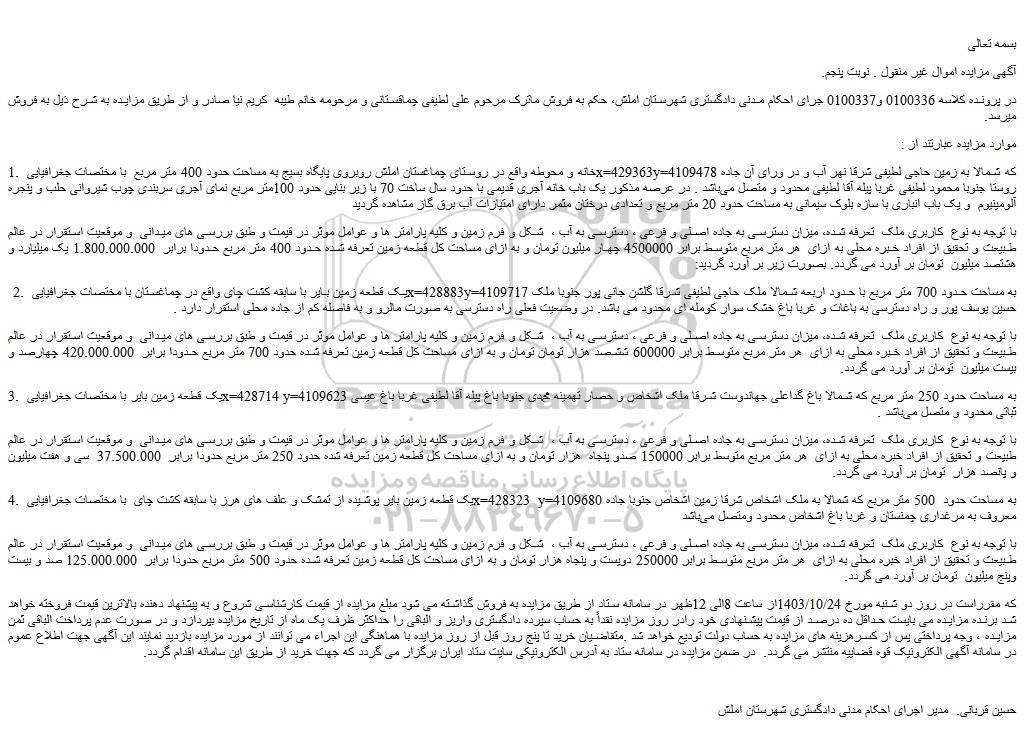 بسمه تعالی
آگهی مزایده اموال غیر منقول . نوبت پنجم.
در پرونده کلاسه 0100336 و0100337 جرای احکام مدنی دادگستری شهرستان املش، حکم به فروش ماترک مرحوم علی لطیفی چماقستانی و مرحومه خانم طیبه کریم نیا صادر و از طریق مزایده به شرح ذیل به فروش
میرسد.
موارد مزایده عبارتند از :
که شمالا به زمین حاجی لطیفی شرقا نهر آب و در ورای آن جاده x=429363y=4109478خانه و محوطه واقع در روستای چماغستان املش روبروی پایگاه بسیج به مساحت حدود 400 متر مربع با مختصات جغرافیایی .1
روستا جنوبا محمود لطیفی غربا پیله آقا لطیفی محدود و متصل می‌باشد . در عرصه مذکور یک باب خانه آجری قدیمی با حدود سال ساخت 70 با زیر بنایی حدود 100متر مربع نمای آجری سربندی چوب شیروانی حلب و پنجره
آلومینیوم و یک باب انباری با سازه بلوک سیمانی به مساحت حدود 20 متر مربع و تعدادی درختان مثمر دارای امتیازات آب برق گاز مشاهده گردید
با توجه به نوع کاربری ملک تعرفه شده، میزان دسترسی به جاده اصلی و فرعی ، دسترسی به آب ، شکل و فرم زمین و کلیه پارامتر ها و عوامل موثر در قیمت و طبق بررسی های میدانی و موقعیت استقرار در عالم
طبیعت و تحقیق از افراد خبره محلی به ازای هر متر مربع متوسط برابر 4500000 چهار میلیون تومان و به ازای مساحت کل قطعه زمین تعرفه شده حدود 400 متر مربع حدودا برابر 1.800.000.000 یک میلیارد و
هشتصد میلیون تومان بر آورد می گردد. بصورت زیر بر آورد گردید:
به مساحت حدود 700 متر مربع با حدود اربعه شمالا ملک حاجی لطیفی شرقا گلشن جانی پور جنوبا ملک x=428883y=4109717یک قطعه زمین بایر با سابقه کشت چای واقع در چماغستان با مختصات جغرافیایی .2
حسین یوسف پور و راه دسترسی به باغات و غربا باغ خشک سوار کومله ای محدود می باشد. در وضعیت فعلی راه دسترسی به صورت مالرو و به فاصله کم از جاده محلی استقرار دارد .
با توجه به نوع کاربری ملک تعرفه شده، میزان دسترسی به جاده اصلی و فرعی ، دسترسی به آب ، شکل و فرم زمین و کلیه پارامتر ها و عوامل موثر در قیمت و طبق بررسی های میدانی و موقعیت استقرار در عالم
طبیعت و تحقیق از افراد خبره محلی به ازای هر متر مربع متوسط برابر 600000 ششصد هزار تومان تومان و به ازای مساحت کل قطعه زمین تعرفه شده حدود 700 متر مربع حدودا برابر 420.000.000 چهارصد و
بیست میلیون تومان بر آورد می گردد.
به مساحت حدود 250 متر مربع که شمالا باغ گداعلی جهاندوست شرقا ملک اشخاص و حصار تهمینه محمدی جنوبا باغ پیله آقا لطیفی غربا باغ عیسی x=428714 y=4109623یک قطعه زمین بایر با مختصات جغرافیایی .3
ثباتی محدود و متصل می‌باشد .
با توجه به نوع کاربری ملک تعرفه شده، میزان دسترسی به جاده اصلی و فرعی ، دسترسی به آب ، شکل و فرم زمین و کلیه پارامتر ها و عوامل موثر در قیمت و طبق بررسی های میدانی و موقعیت استقرار در عالم
طبیعت و تحقیق از افراد خبره محلی به ازای هر متر مربع متوسط برابر 150000 صدو پنجاه هزار تومان و به ازای مساحت کل قطعه زمین تعرفه شده حدود 250 متر مربع حدودا برابر 37.500.000 سی و هفت میلیون
و پانصد هزار تومان بر آورد می گردد.
به مساحت حدود 500 متر مربع که شمالا به ملک اشخاص شرقا زمین اشخاص جنوبا جاده x=428323 y=4109680یک قطعه زمین بایر پوشیده از تمشک و علف های هرز با سابقه کشت چای با مختصات جغرافیایی .4
معروف به مرغداری چمنستان و غربا باغ اشخاص محدود ومتصل می‌باشد
با توجه به نوع کاربری ملک تعرفه شده، میزان دسترسی به جاده اصلی و فرعی ، دسترسی به آب ، شکل و فرم زمین و کلیه پارامتر ها و عوامل موثر در قیمت و طبق بررسی های میدانی و موقعیت استقرار در عالم
طبیعت و تحقیق از افراد خبره محلی به ازای هر متر مربع متوسط برابر 250000 دویست و پنجاه هزار تومان و به ازای مساحت کل قطعه زمین تعرفه شده حدود 500 متر مربع حدودا برابر 125.000.000 صد و بیست
وپنج میلیون تومان بر آورد می گردد.
که مقرراست در روز دو شنبه مورخ 1403/10/24از ساعت 8الی 12ظهر در سامانه ستاد از طریق مزایده به فروش گذاشته می شود مبلغ مزایده از قیمت کارشناسی شروع و به پیشنهاد دهنده بالاترین قیمت فروخته خواهد
شد برنده مزایده می بایست حداقل ده درصد از قیمت پیشنهادی خود رادر روز مزایده نقداً به حساب سپرده دادگستری واریز و الباقی را حداکثر ظرف یک ماه از تاریخ مزایده بپردازد و در صورت عدم پرداخت الباقی ثمن
مزایده ، وجه پرداختی پس از کسرهزینه های مزایده به حساب دولت تودیع خواهد شد .متقاضیان خرید تا پنج روز قبل از روز مزایده با هماهنگی این اجراء می توانند از مورد مزایده بازدید نمایند این آگهی جهت اطلاع عموم
در سامانه آگهی الکترونیک قوه قضاییه منتشر می گردد. در ضمن مزایده در سامانه ستاد به آدرس الکترونیکی سایت ستاد ایران برگزار می گردد که جهت خرید از طریق این سامانه اقدام گردد.
حسین قربانی. مدیر اجرای احکام مدنی دادگستری شهرستان املش
ParsNamadData
پایگاه اطلاع رسانی مناقصه و مزایده
۰۲۱-۸۸۳۴۹۶۷۰-۵